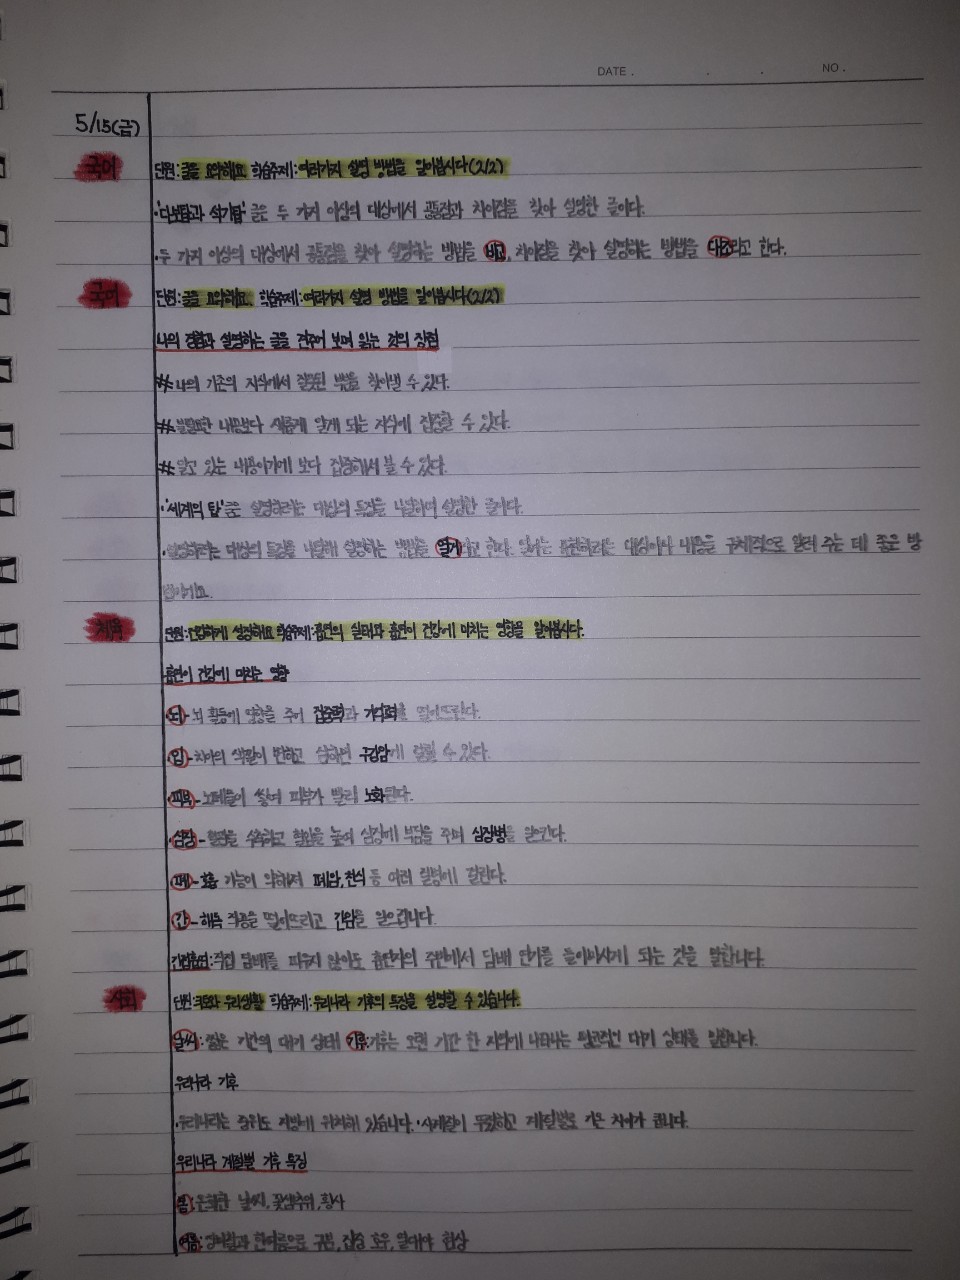 DATE . . . NO .
5/15(금)
국어 단원:글을 요약해요 학습주제:여러가지 설명 방법을 알아봅시다(2/2)
·'다보탑과 석가탑' 글은 두 가지 이상의 대상에서 공통점과 차이점을 찾아 설명한 글이다.
·두 가지 이상의 대상에서 공통점을 찾아 설명하는 방법을 비교, 차이점을 찾아 설명하는 방법을 대조라고 한다.
국어 단원:글을 요약해요, 학습주제:여러가지 설명 방법을 알아봅시다(2/2)
나의 경험과 설명하는 글을 견주어 보며 읽는 것의 장점
#나의 기존의 지식에서 잘못된 부분을 찾아낼 수 있다.
#불필요한 내용보다 새롭게 알게 되는 지식에 집중할 수 있다.
#알고 있는 내용이기에 보다 집중해서 볼 수 있다.
·'세계의 탑' 글은 설명하려는 대상의 특징을 나열하여 설명한 글이다.
·설명하려는 대상의 특징을 나열해 설명하는 방법을 열거라고 한다. 열거는 표현하려는 대상이나 내용을 구체적으로 알려 주는 데 좋은 방
법이에요.
체육 단원:건강하게 성장해요 학습주제:흡연의 실태와 흡연이 건강에 미치는 영향을 알아봅시다.
흡연이 건강에 미치는 영향
·뇌-뇌 활동에 영향을 주어 집중력과 기억력을 떨어뜨린다.
·입-치아의 색깔이 변하고 심하면 구강암에 걸릴 수 있다.
·피부-노폐물이 쌓여 피부가 빨리 노화된다.
·심장-혈관을 수축하고 혈압을 높여 심장에 부담을 주며 심장병을 일으킨다.
·폐-호흡 기능이 약해져 폐암, 천식 등 여러 질병에 걸린다.
·간-해독 작용을 떨어뜨리고 간암을 일으킵니다.
간접흡연:직접 담배를 피우지 않아도 흡연자의 주변에서 담배 연기를 들이마시게 되는 것을 말합니다.
사회 단원:국토와 우리생활 학습주제:우리나라 기후의 특징을 설명할 수 있습니다.
날씨:짧은 기간의 대기 상태 기후:기후는 오랜 기간 한 지역에 나타나는 평균적인 대기 상태를 말합니다.
우리나라 기후
·우리나라는 중위도 지방에 위치해 있습니다. ·사계절이 뚜렷하고 계절별로 기온 차이가 큽니다.
우리나라 계절별 기후 특징
봄:온화한 날씨, 꽃샘추위, 황사
여름:장마철과 한여름으로 구분, 집중 호우, 열대야 현상